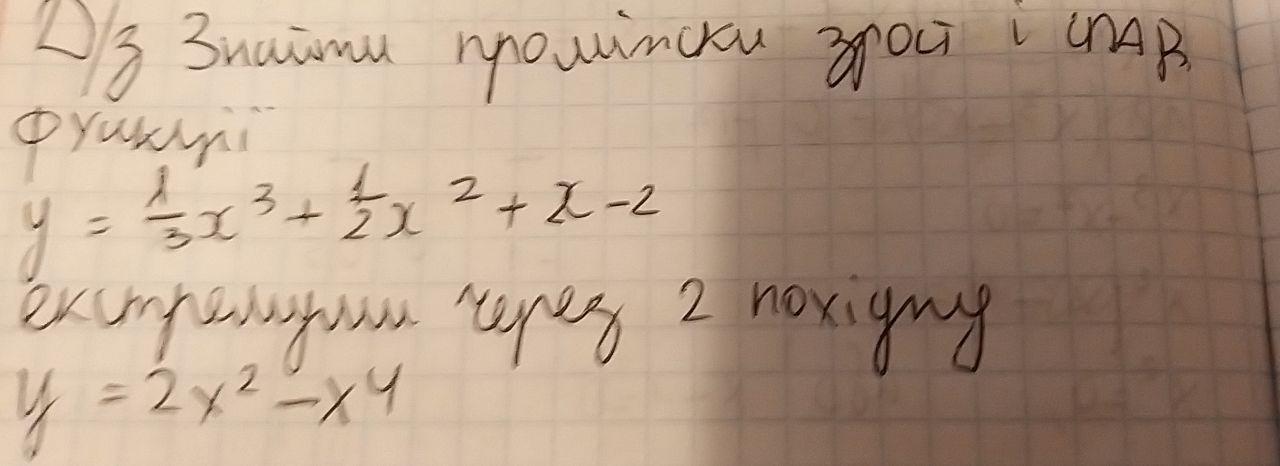 Д/з Знайти проміжки зрост і спад
функції
y = 1/3 x³ + 1/2 x² + x - 2
екстремуми через 2 похідну
y = 2x² - x⁴